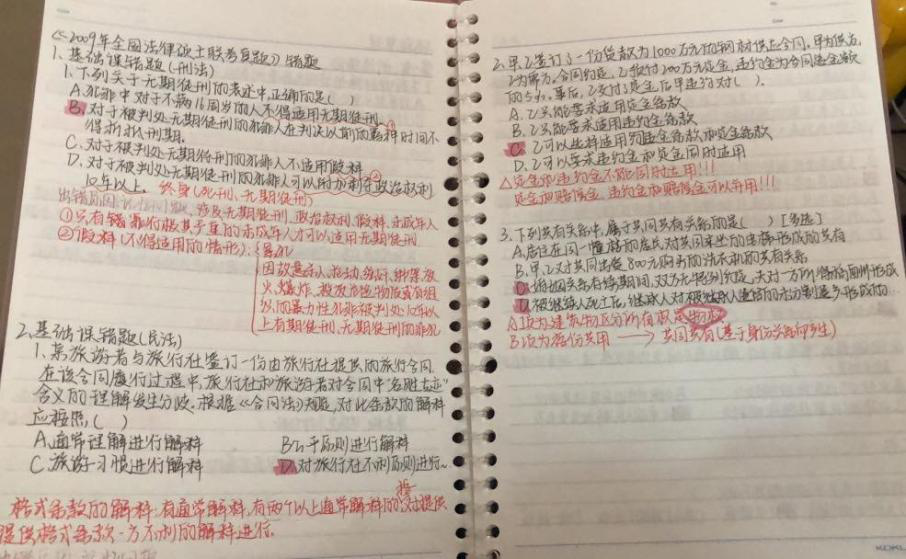 《2009年全国法律硕士联考真题》错题
1.基础课错题(刑法)
1.下列关于无期徒刑的表述中,正确的是( )
A.犯罪中对于不满16周岁的人不得适用无期徒刑
B.对于被判处无期徒刑的犯罪人在判决以前的羁押时间不
得折抵刑期.
C.对于被判处无期徒刑的犯罪人不适用假释
D.对于被判处无期徒刑的犯罪人可以附加剥夺政治权利
10年以上. 终身(死刑、无期徒刑)
出错原因 涉及无期徒刑、政治权利、假释、未成年人
①只有罪行极其严重的未成年人才可以适用无期徒刑
②假释(不得适用的情形): 累犯
因故意杀人、抢劫、绑架、放
火、爆炸、投放危险物质或有组
织的暴力性犯罪被判处10年以
上有期徒刑、无期徒刑的罪犯
2.基础课错题(民法)
1.某旅游者与旅行社签订一份由旅行社提供的旅行合同.
在该合同履行过程中,旅行社和旅游者对合同中"名胜古迹"
含义的理解发生分歧.根据《合同法》规定,对此条款的解释
应按照( )
A.通常理解进行解释 B.公平原则进行解释
C.旅游习惯进行解释 D.对旅行社不利原则进行~
格式条款的解释:有通常解释,有两个以上通常解释的,对提供
提供格式条款一方不利的解释进行.
2.甲乙签订了一份货款为1000万元的钢材供应合同,甲为供方,
乙为需方.合同约定,乙预付200万元定金,违约金为合同总金额
的5%.事后,乙支付了定金后甲违约对( ).
A.乙只能要求适用定金条款
B.乙只能要求适用违约金条款
C.乙可以选择适用违约金条款和定金条款
D.乙可以要求违约金和定金同时适用
△定金和违约金不能同时适用!!!
定金和赔偿金、违约金和赔偿金可以并用!!!
3.下列共有关系中,属于共同共有关系的是( ) [多选]
A.居住在同一幢楼的居民对共同乘坐的电梯形成的共有
B.甲、乙对共同出资800元购买的洗衣机的共有关系
C.婚姻关系存续期间,双方无特别约定,夫对一方所得的
D.被继承人死亡后,继承人对被继承人遗留的未分割遗产形成的~
A项为建筑物区分所有权
B项为按份共用 → 共同共有(基于身份关系而产生)